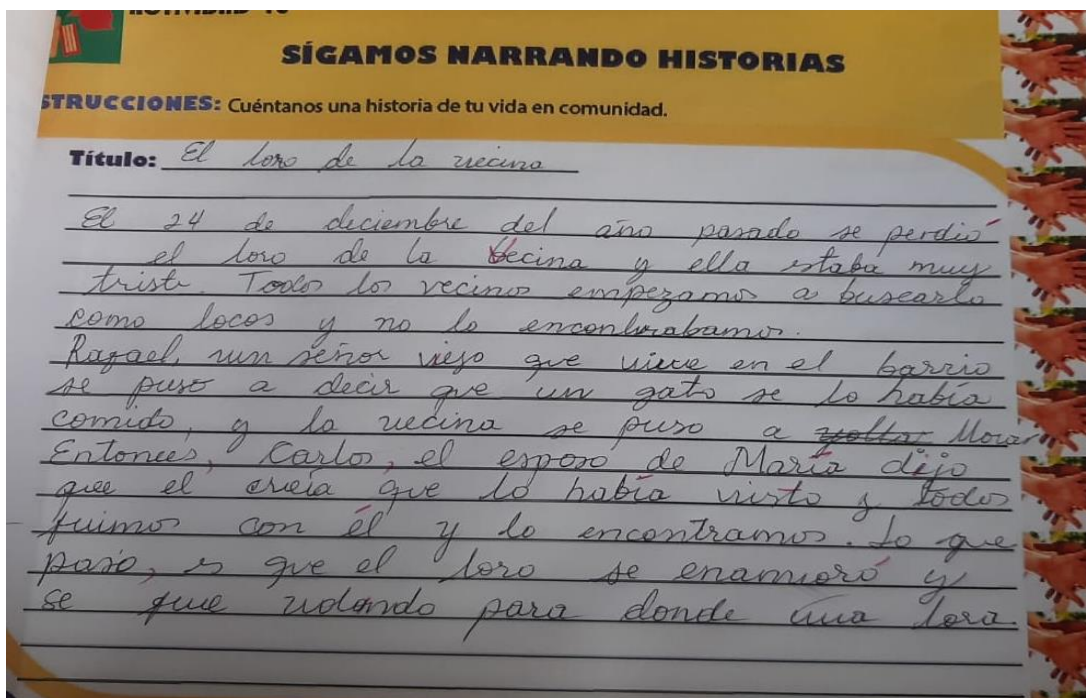 SÍGAMOS NARRANDO HISTORIAS
STRUCCIONES: Cuéntanos una historia de tu vida en comunidad.
Título: El loro de la vecina
El 24 de diciembre del año pasado se perdió
el loro de la vecina y ella estaba muy
triste. Todos los vecinos empezamos a buscarlo
como locos y no lo encontrabamos.
Rafael, un señor viejo que vive en el barrio
se puso a decir que un gato se lo había
comido, y la vecina se puso a llorar
Entonces, Carlos, el esposo de María dijo
que el creía que lo había visto y todos
fuimos con él y lo encontramos. Lo que
paso, es que el loro se enamoró y
se fue volando para donde una lora.